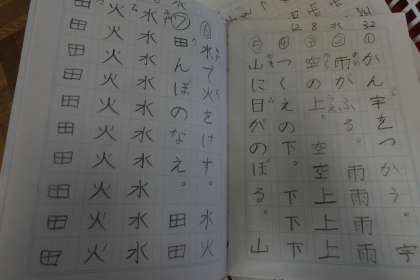 ①かん字をつかう。字
②雨がふる。雨雨雨
③空の上。空空上上
④つくえの下。下下下
⑤山に日がのぼる。山
⑥水で火をけす。水火
⑦田んぼのなえ。田田
水水水水水水水
火火火火火火火火
田田田田田田田田田